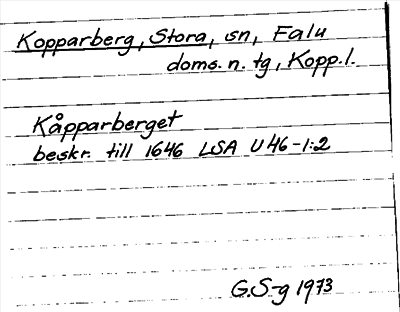 Kopparberg, Stora, sn, Falu
doms. n. tg, Kopp. l.
Kåpparberget
beskr. till 1646 LSA U46-1:2
G.S-g 1973